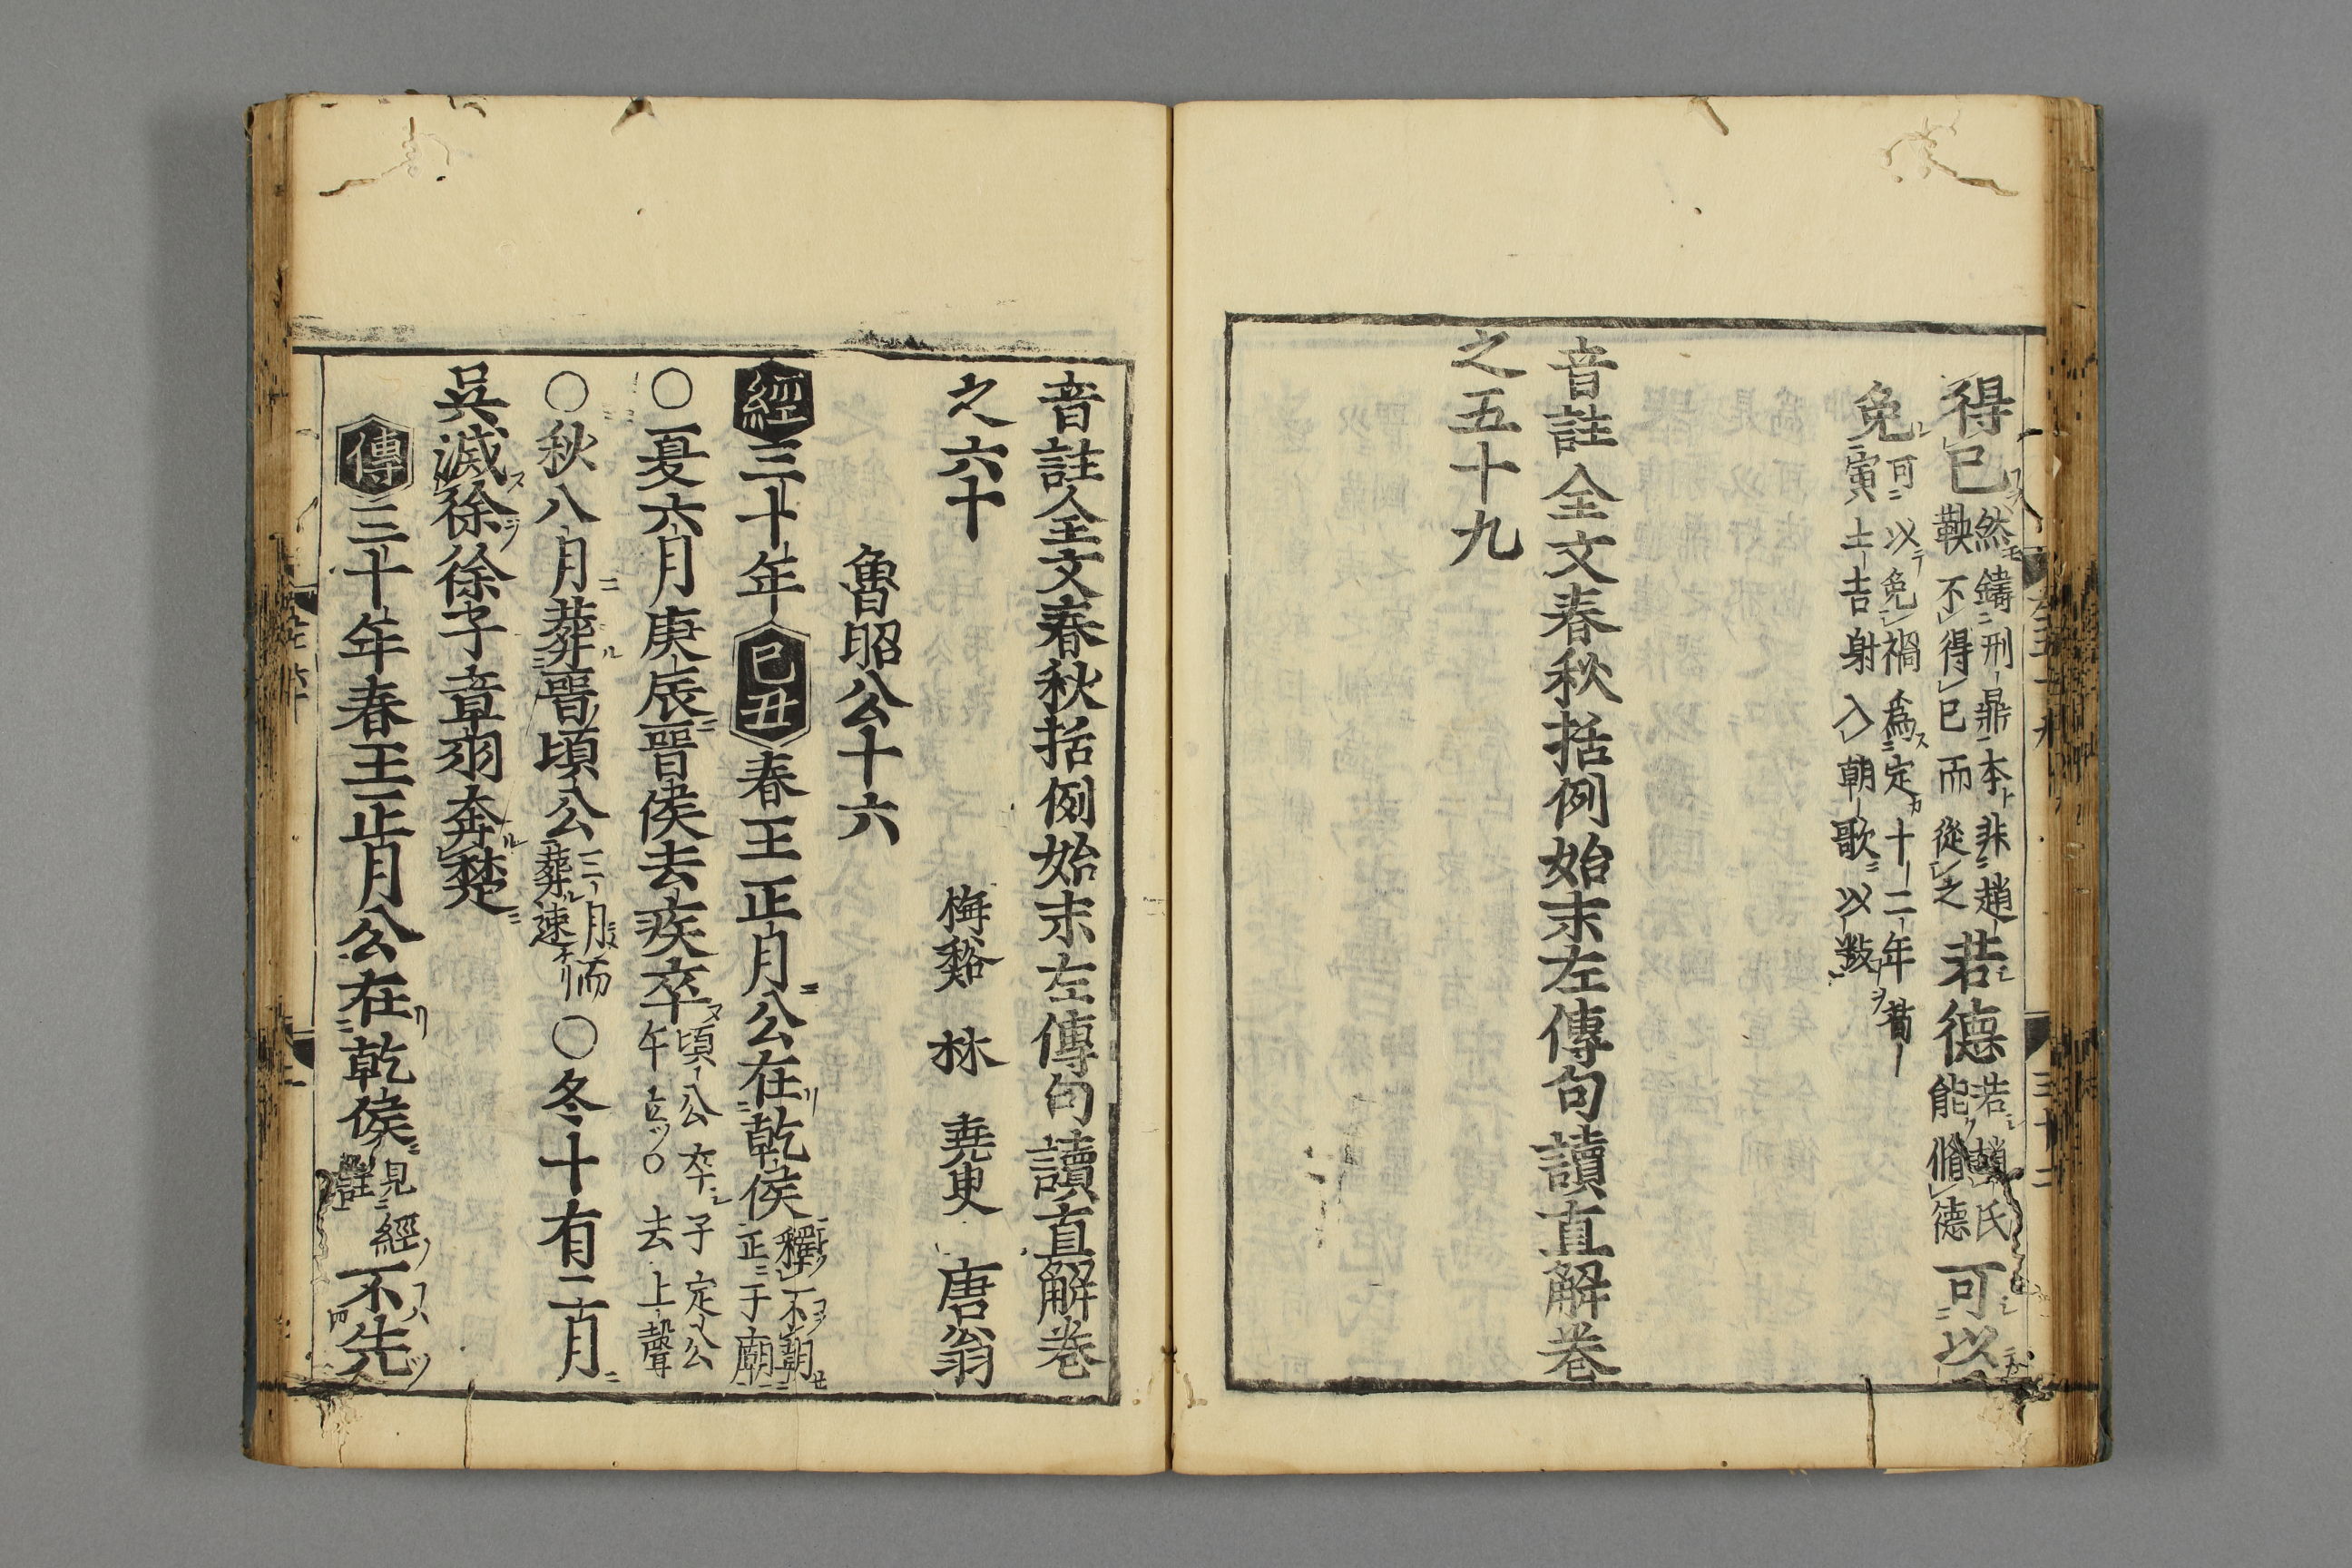 得已然鑄刑鼎本非趙鞅不得已而從之若德若趙氏能脩德可以
免可以免禍爲定十二年荀寅士吉射入朝歌以叛
音註全文春秋括例始末左傳句讀直解卷
之五十九
音註全文春秋括例始末左傳句讀直解卷
之六十
梅谿 林 堯叟 唐翁
魯昭公十六
經三十年己丑春王正月公在乾侯釋不朝正于廟
○夏六月庚辰晉侯去疾卒頃公卒子定公午立○去上聲
○秋八月葬晉頃公三月而葬速○冬十有二月
吳滅徐徐子章羽奔楚
傳三十年春王正月公在乾侯見經註不先